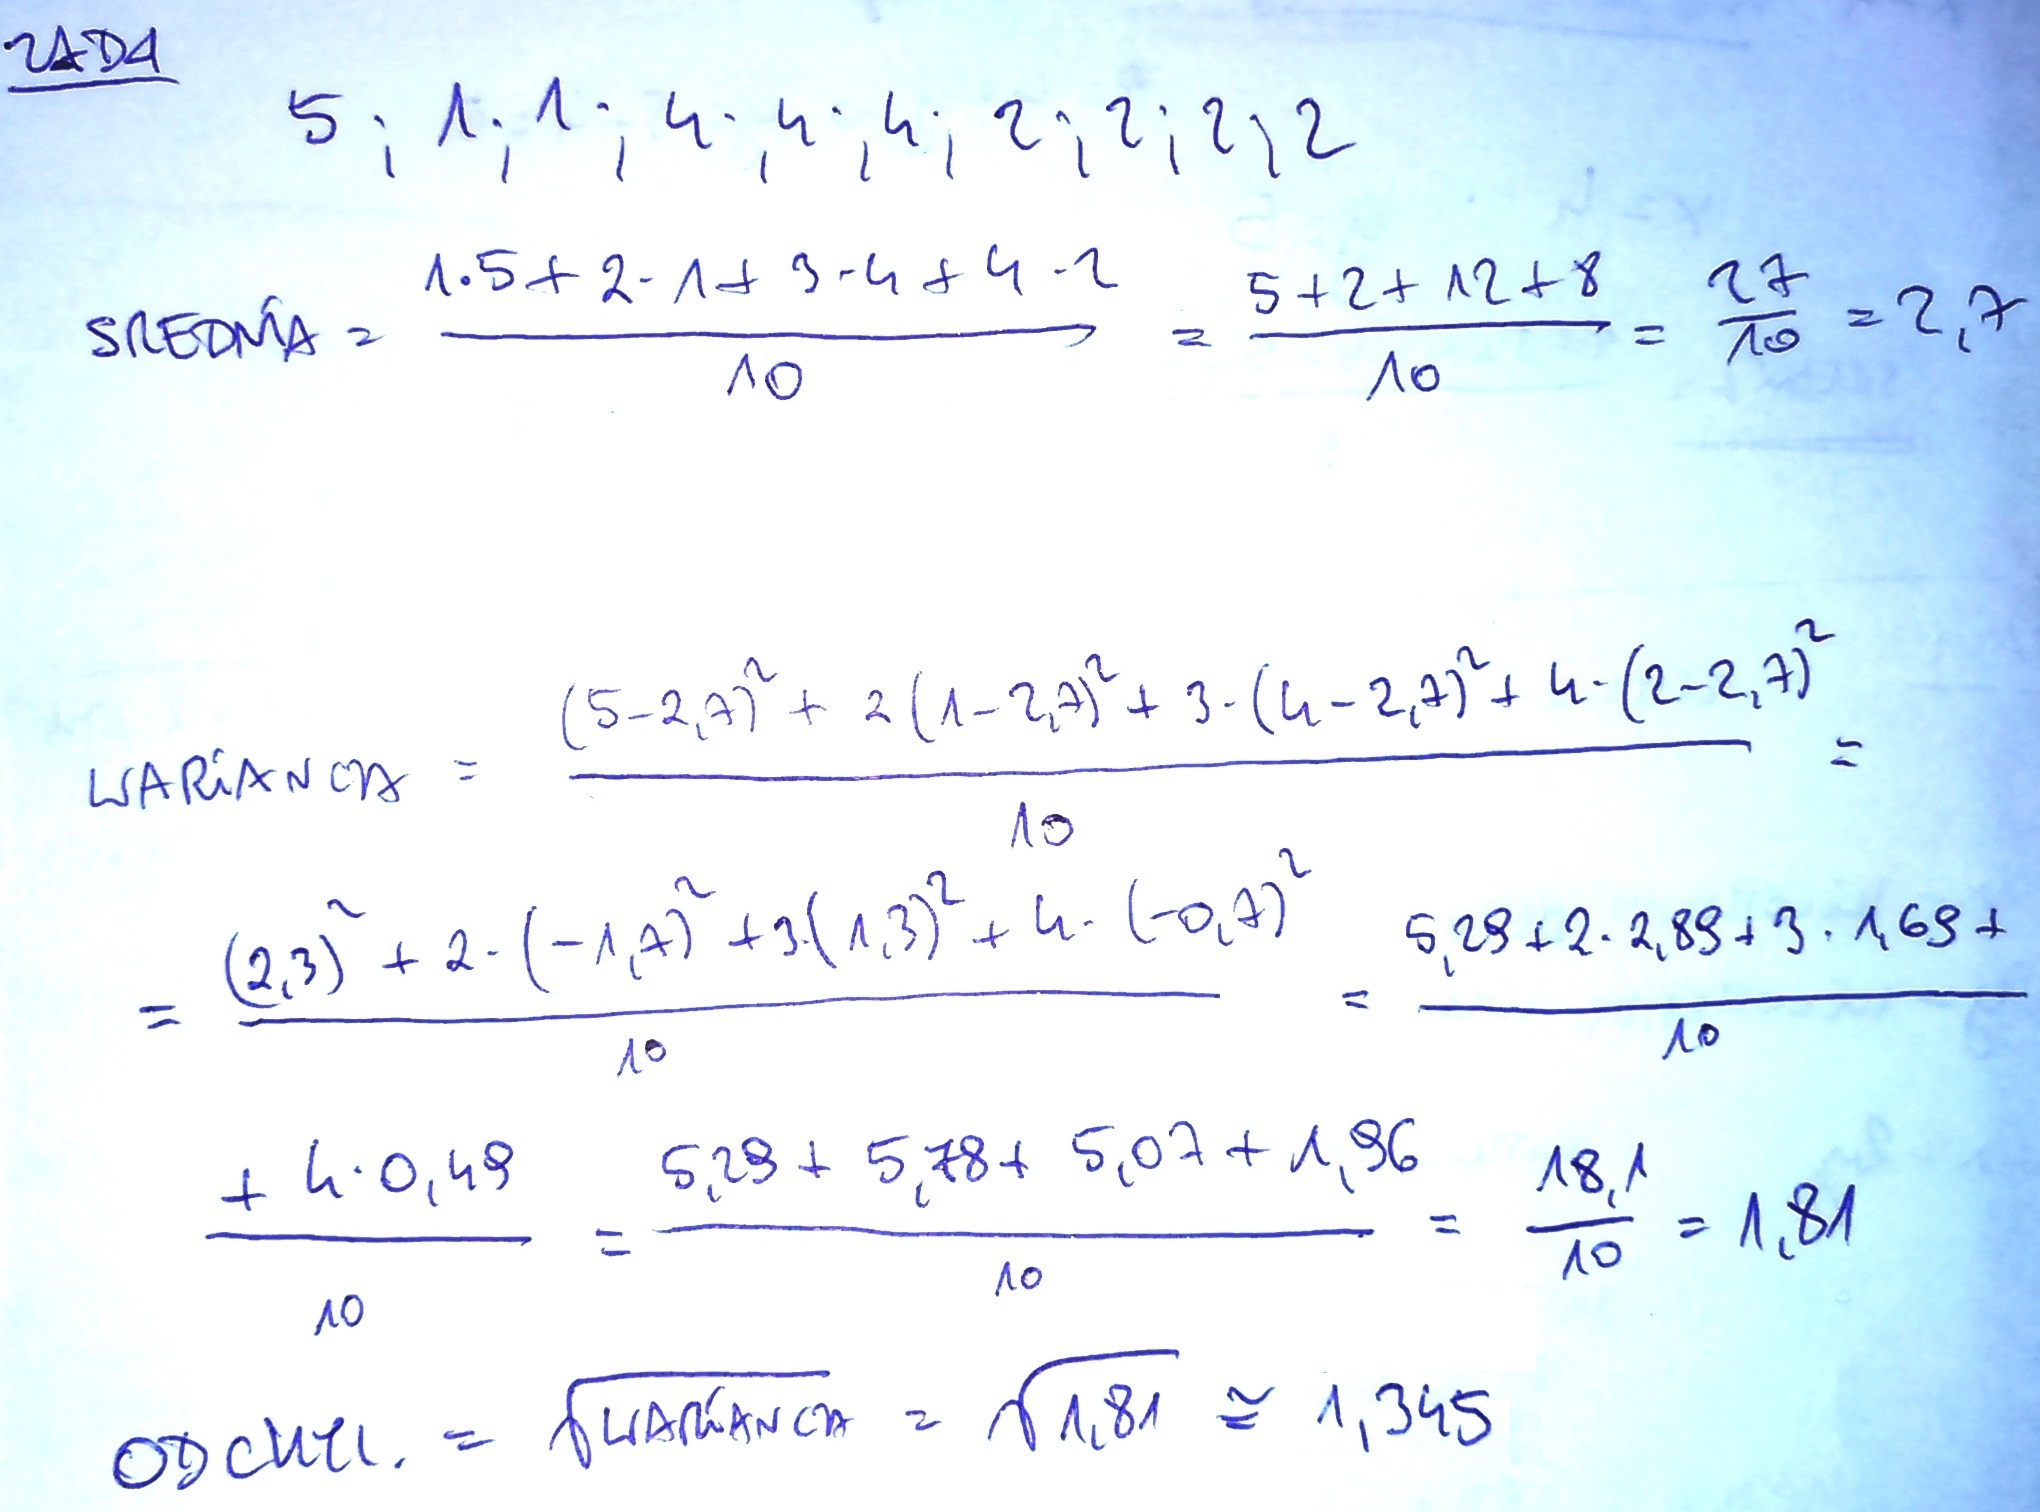 ZAD1
5; 1; 1; 4; 4; 4; 2; 2; 2; 2
ŚREDNIA = (1·5 + 2·1 + 3·4 + 4·2)/10 = (5+2+12+8)/10 = 27/10 = 2,7
WARIANCJA = ((5-2,7)² + 2(1-2,7)² + 3·(4-2,7)² + 4·(2-2,7)²)/10 =
= ((2,3)² + 2·(-1,7)² + 3·(1,3)² + 4·(-0,7)²)/10 = (5,29 + 2·2,89 + 3·1,69 +)/10
(+ 4·0,49)/10 = (5,29 + 5,78 + 5,07 + 1,96)/10 = 18,1/10 = 1,81
ODCHYL. = √WARIANCJA = √1,81 ≅ 1,345